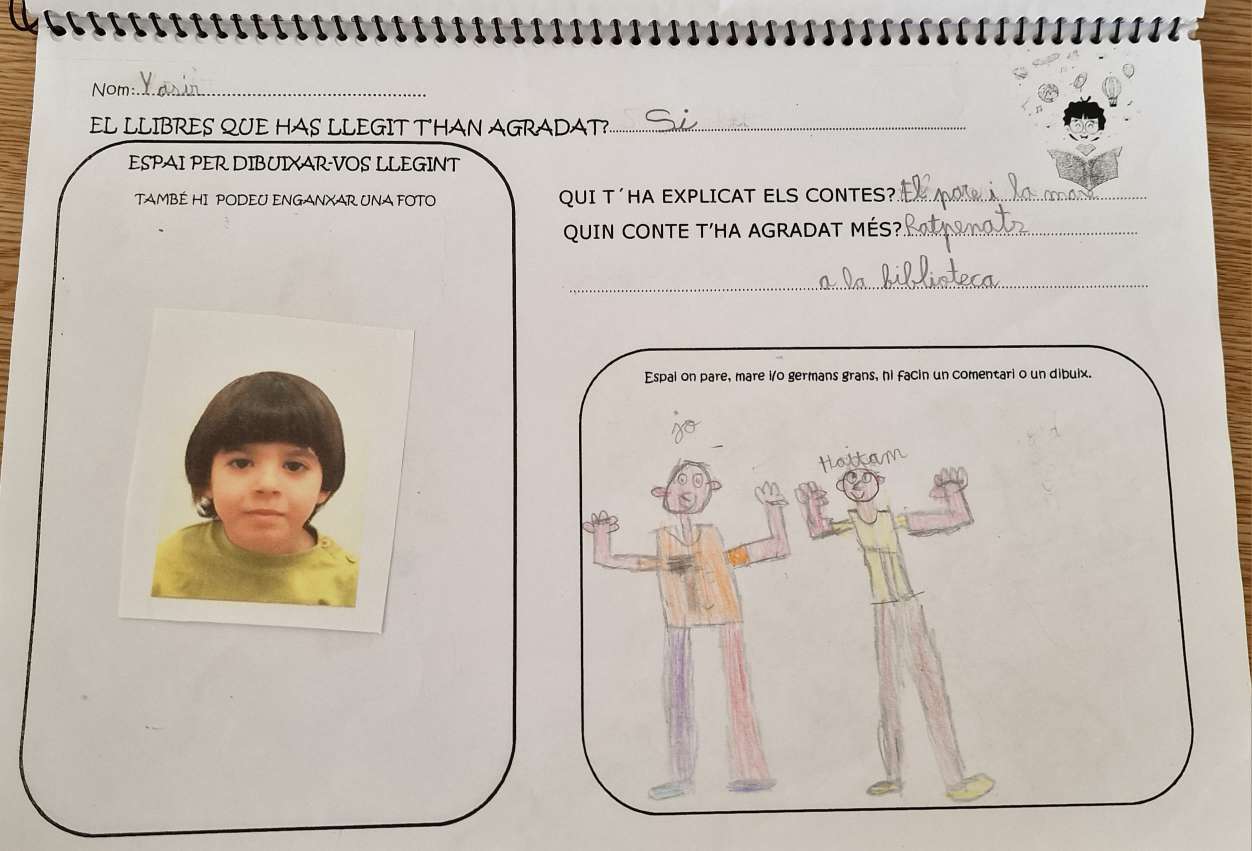 Nom: Yasin
EL LLIBRES QUE HAS LLEGIT T'HAN AGRADAT? Si
ESPAI PER DIBUIXAR-VOS LLEGINT
TAMBÉ HI PODEU ENGANXAR UNA FOTO
QUI T´HA EXPLICAT ELS CONTES? El pare i la mare
QUIN CONTE T'HA AGRADAT MÉS? Ratpenats
a la biblioteca
Espai on pare, mare i/o germans grans, hi facin un comentari o un dibuix.
jo
Haitam